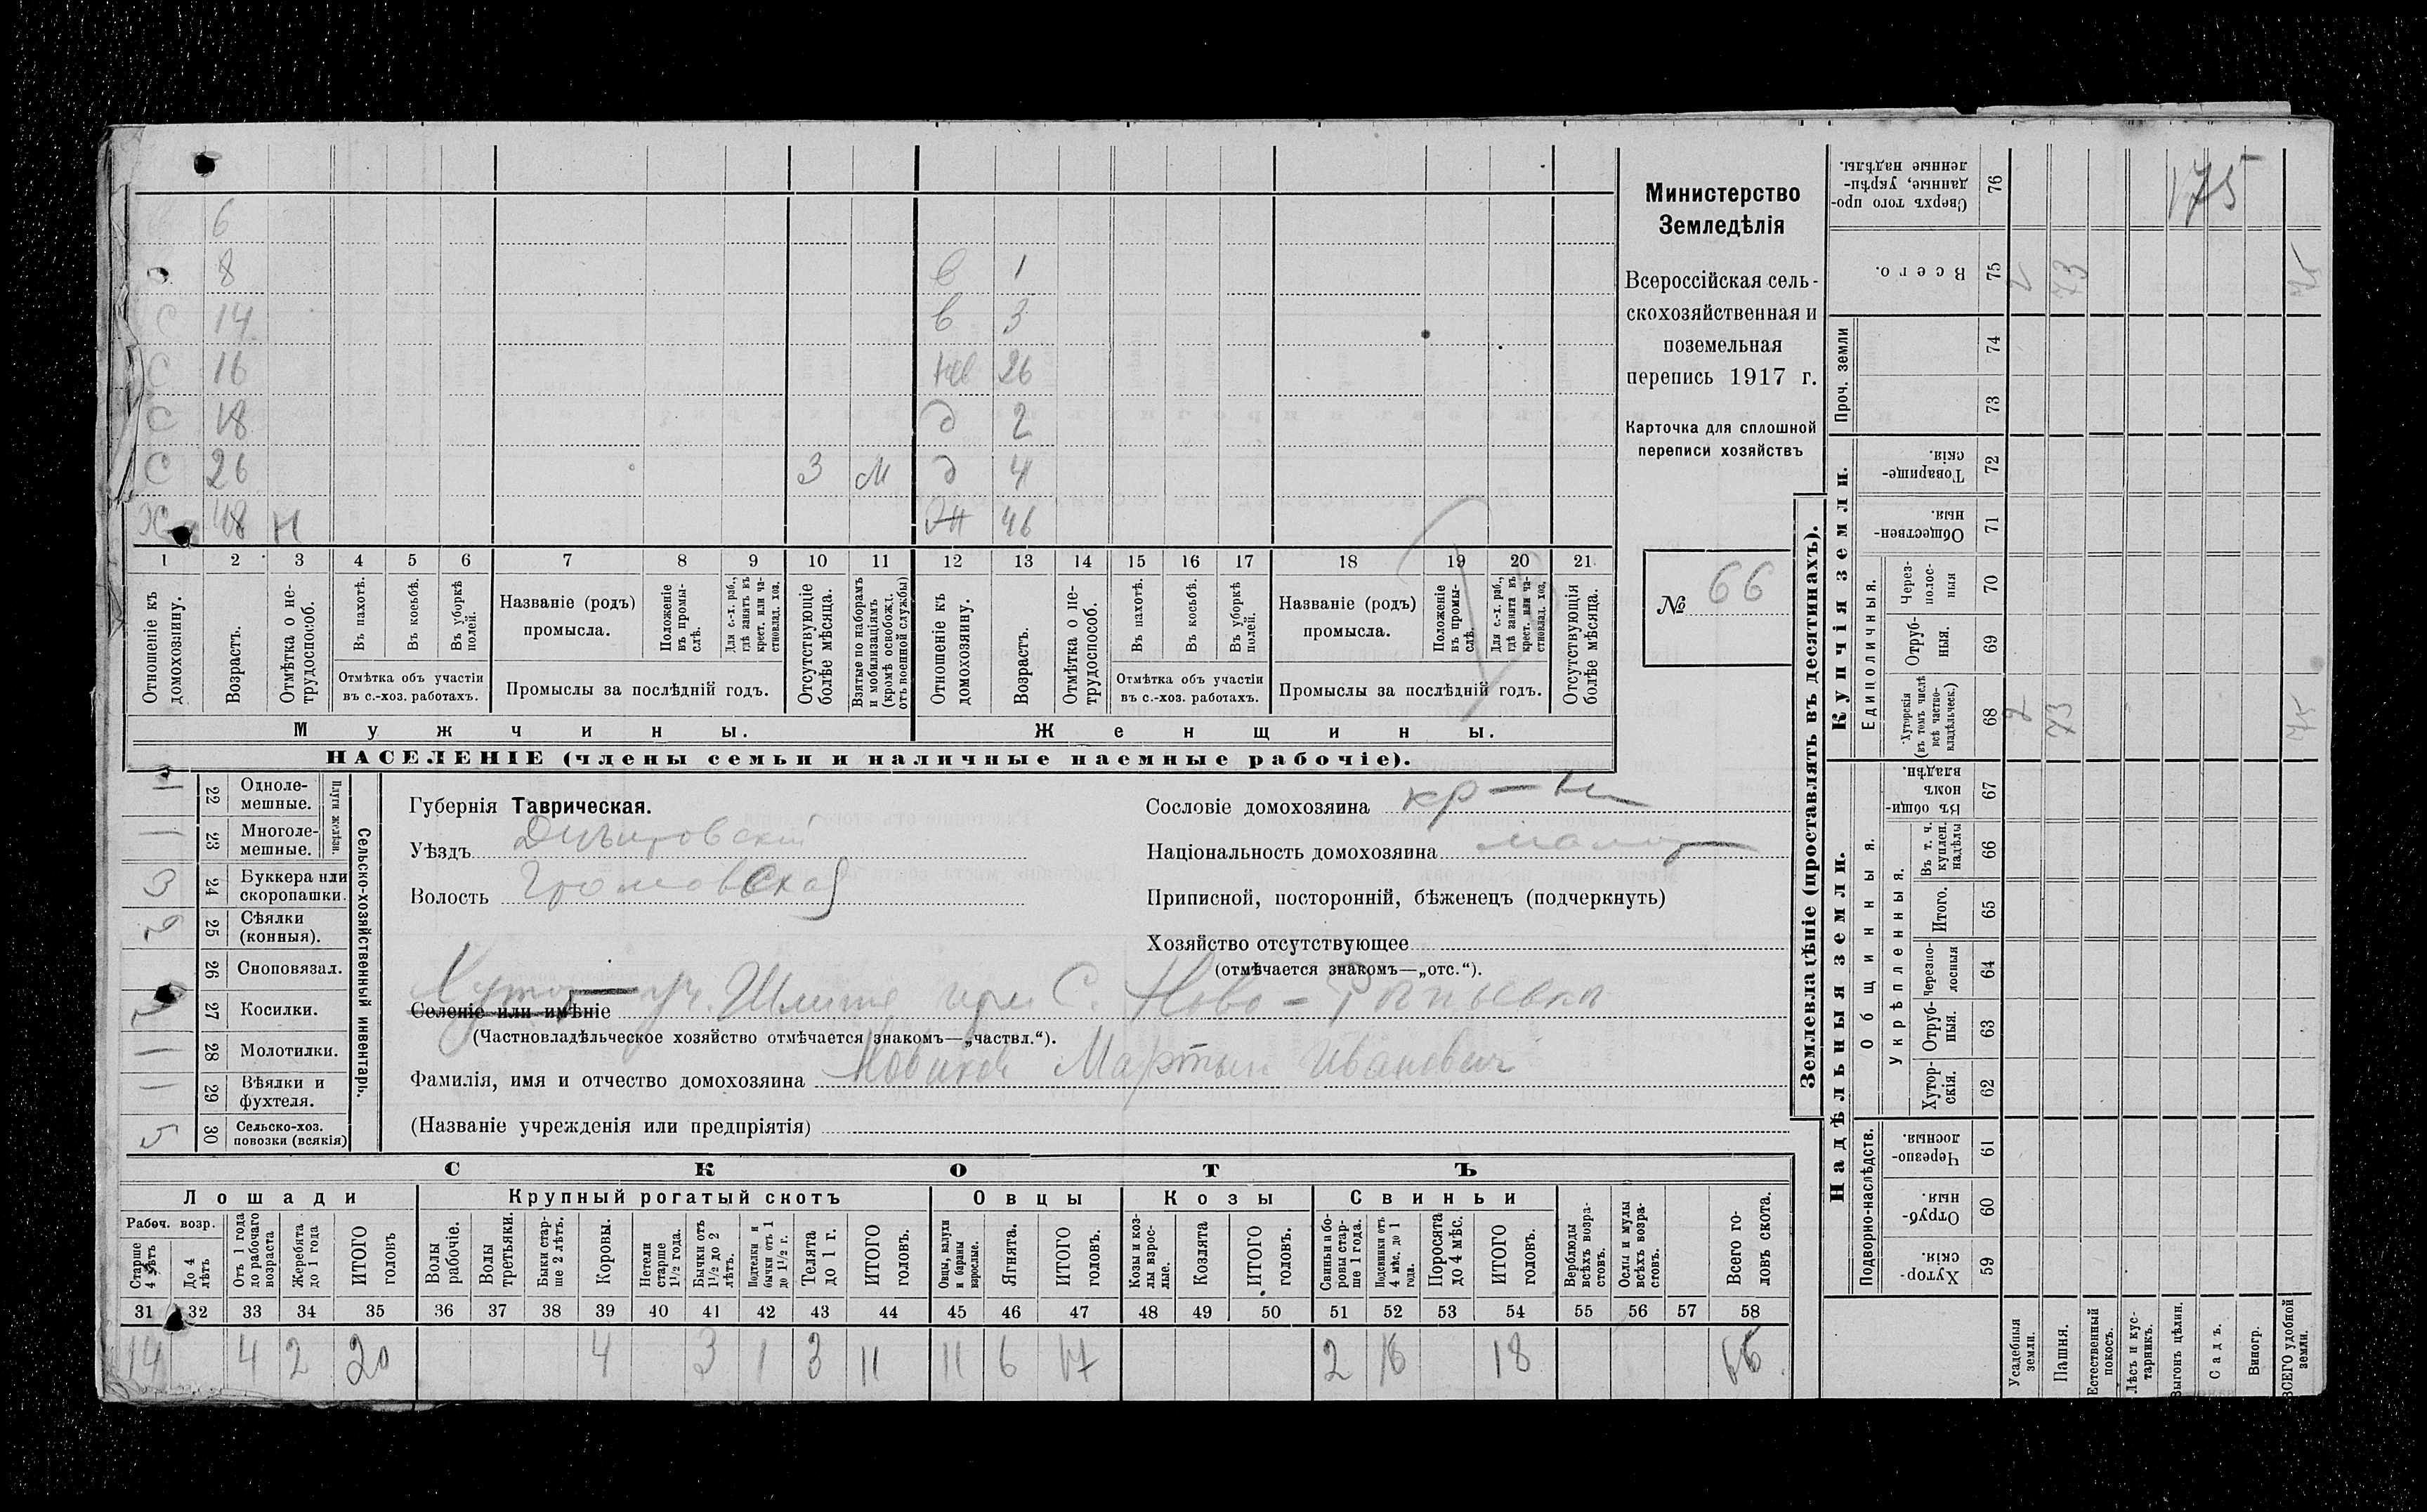 6
8
в 1
С 14
в 3
С 16
нев 26
С 18
д 2
С 26
З
м
д 4
Х 48 Н
46
1 2 3 4 5 6 7 8 9 10 11 12 13 14 15 16 17 18 19 20 21
Отношеніе къ домохозяину.
Возрастъ.
Отмѣтка о нетрудоспособ.
Въ пахотѣ.
Въ косьбѣ.
Въ уборкѣ полей.
Отмѣтка объ участіи въ с.-хоз. работахъ.
Названіе (родъ) промысла.
Положеніе въ промыслѣ.
Для с.-х. раб., гдѣ занятъ въ крест. или частновлад. хоз.
Промыслы за послѣдній годъ.
Отсутствующіе болѣе мѣсяца.
Взятые по наборамъ и мобилизаціямъ (кромѣ освобожд. отъ военной службы)
Отношеніе къ домохозяину.
Возрастъ.
Отмѣтка о нетрудоспособ.
Въ пахотѣ.
Въ косьбѣ.
Въ уборкѣ полей.
Отмѣтка объ участіи въ с.-хоз. работахъ.
Названіе (родъ) промысла.
Положеніе въ промыслѣ.
Для с.-х. раб., гдѣ занята въ крест. или частновлад. хоз.
Промыслы за послѣдній годъ.
Отсутствующія болѣе мѣсяца.
Мужчины.
Женщины.
НАСЕЛЕНІЕ (члены семьи и наличные наемные рабочіе).
Министерство
Земледѣлія
Всероссійская сель-
скохозяйственная и
поземельная
перепись 1917 г.
Карточка для сплошной
переписи хозяйствъ
№ 66
22 Одноле-мешные.
1 23 Многоле-мешные.
Плуги желѣзн.
3 24 Буккера или скоропашки.
2 25 Сѣялки (конныя).
26 Сноповязал.
27 Косилки.
1 28 Молотилки.
1 29 Вѣялки и фухтеля.
5 30 Сельско-хоз. повозки (всякія)
Сельско-хозяйственный инвентарь.
Губернія Таврическая.
Уѣздъ Днѣпровскій
Волость Громовская
Сословіе домохозяина кр-нъ
Національность домохозяина малор
Приписной, посторонній, бѣженецъ (подчеркнуть)
Хозяйство отсутствующее
(отмѣчается знакомъ—„отс.“).
Селеніе или имѣніе С. Ново-
(Частновладѣльческое хозяйство отмѣчается знакомъ—„частвл.“).
Фамилія, имя и отчество домохозяина Новиков Мартын Иванович
(Названіе учрежденія или предпріятія)
СКОТЪ
Лошади
Крупный рогатый скотъ
Овцы
Козы
Свиньи
Рабоч. возр.
Старше 4 лѣтъ
До 4 лѣтъ
Отъ 1 года до рабочаго возраста
Жеребята до 1 года
ИТОГО головъ
Волы рабочіе.
Волы третьяки.
Быки старше 2 лѣтъ.
Коровы.
Нетели старше 1½ года.
Бычки отъ 1½ до 2 лѣтъ.
Подтелки и бычки отъ 1 до 1½ г.
Телята до 1 г.
ИТОГО головъ.
Овцы, валухи и бараны взрослые.
Ягнята.
ИТОГО головъ.
Козы и козлы взрослые.
Козлята
ИТОГО головъ.
Свиньи и боровы старше 1 года.
Подсвинки отъ 4 мѣс. до 1 года.
Поросята до 4 мѣс.
ИТОГО головъ.
Верблюды всѣхъ возрастовъ.
Ослы и мулы всѣхъ возрастовъ.
Всего головъ скота.
31 32 33 34 35 36 37 38 39 40 41 42 43 44 45 46 47 48 49 50 51 52 53 54 55 56 57 58
14 4 2 20 4 3 1 3 11 11 6 17 2 16 18 66
Землевладѣніе (проставлять въ десятинахъ).
Надѣльныя земли.
Купчія земли.
Проч. земли
Подворно-наслѣдств.
Общинныя.
Укрѣпленныя.
Единоличныя.
Сверхъ того проданные, укрѣпленные надѣлы. 76
175
Всего. 75
2 73 75
74
73
Товарищескія. 72
Общественныя. 71
Черезполосныя 70
Отрубныя. 69
Хуторскія (въ томъ числѣ всѣ частновладѣльческ.) 68
2 73 75
Въ общинномъ владѣн. 67
Въ т. ч. куплен. надѣлы 66
Итого. 65
Черезполосныя 64
Отрубныя. 63
Хуторскія. 62
Черезполосныя. 61
Отрубныя. 60
Хуторскія. 59
Усадебныя земли.
Пашня.
Естественный покосъ.
Лѣсъ и кустарникъ.
Выгонъ цѣлин.
Садъ.
Виногр.
ВСЕГО удобной земли.